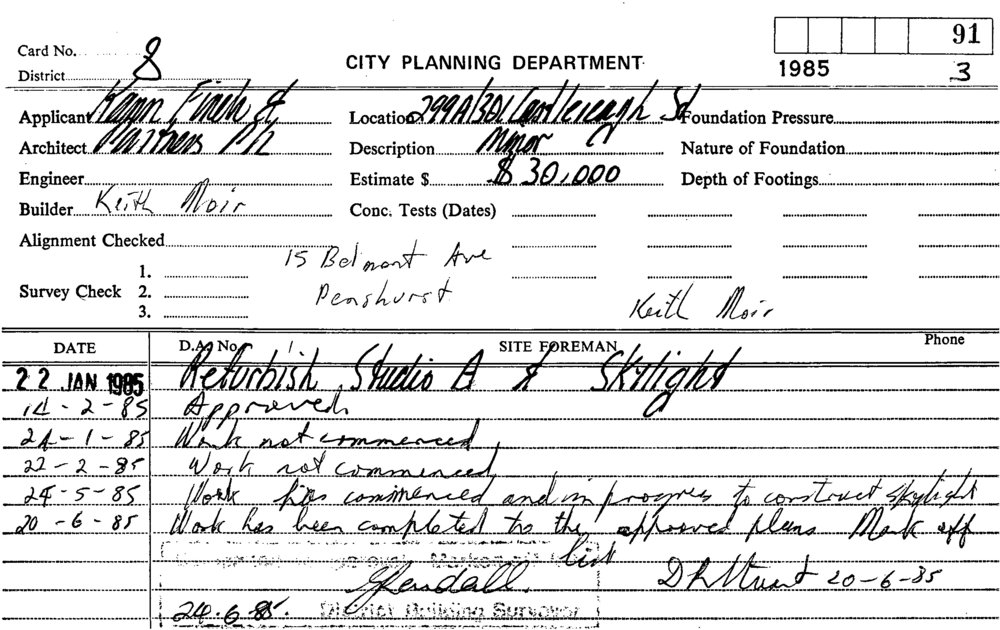 91
Card No. 8
CITY PLANNING DEPARTMENT
1985 3
District
Applicant Kann Finch & Location 299A/301 Castlereagh St Foundation Pressure
Architect Partners P/L Description Minor Nature of Foundation
Engineer Estimate $ $30,000 Depth of Footings
Builder Keith Moir Conc. Tests (Dates)
Alignment Checked
15 Belmont Ave
1.
Survey Check 2. Penshurst Keith Moir
3.
DATE D.A. No. SITE FOREMAN Phone
22 JAN 1985 Refurbish Studio A & Skylight
14-2-85 Approved
24-1-85 Work not commenced
22-2-85 Work not commenced
24-5-85 Work has commenced and in progress to construct skylight
20-6-85 Work has been completed to the approved plans Mark off
list
20-6-85
24.6.85. District Building Surveyor